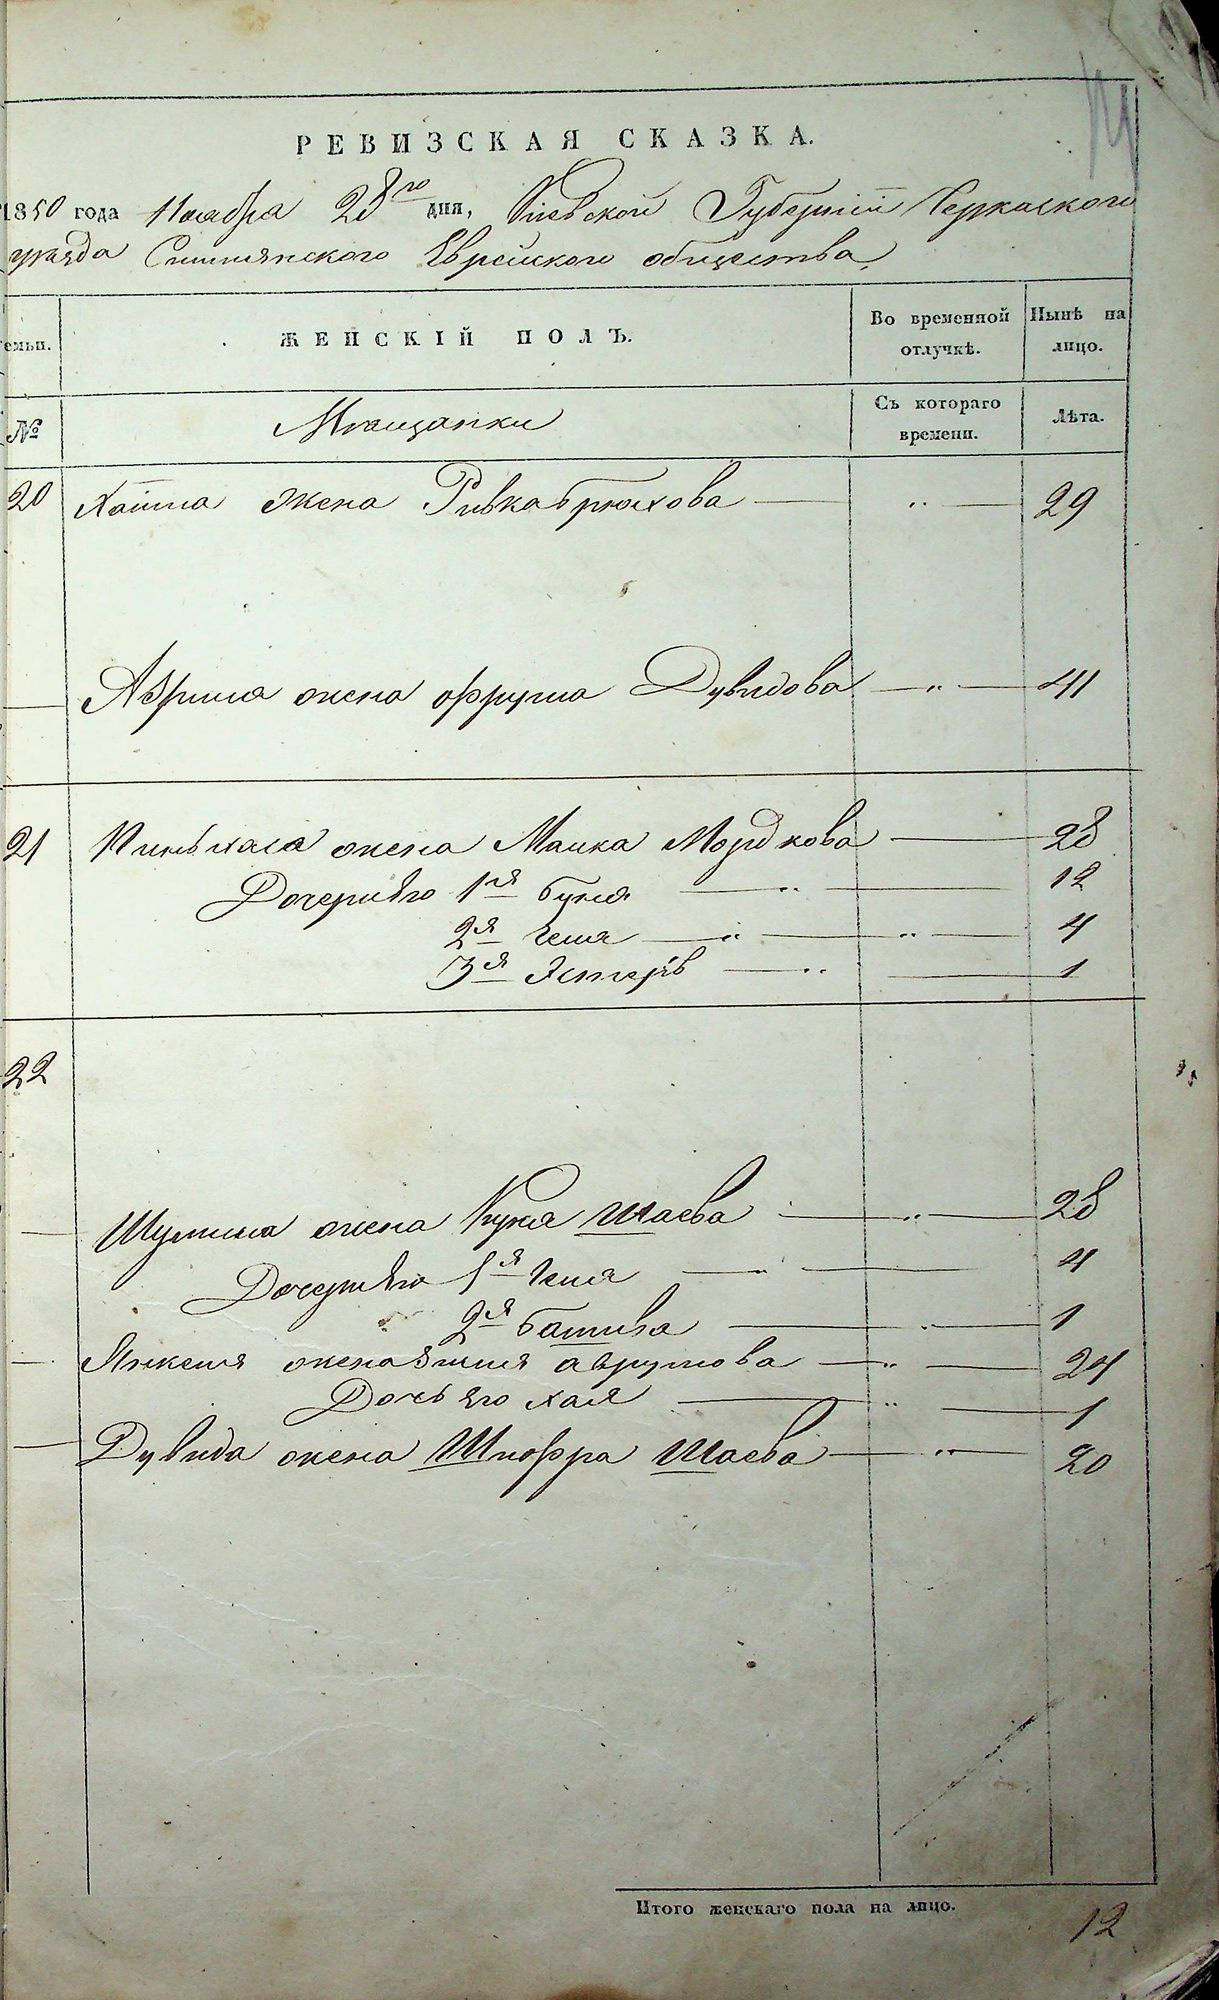 РЕВИЗСКАЯ СКАЗКА.
1850 года Ноября 28го дня, Киевской Губернии Черкаского
уезда Смилянского Еврейского общества
емьи. ЖЕНСКІЙ ПОЛЪ. Во временной отлучкѣ. Нынѣ на лицо.
№ Мещанки Съ котораго времени. Лѣта.
20 Хаима жена Ривка Брюхова — „ — 29
Аврума жена Фрума Дувидова — „ — 41
21 Пиньхаса жена Малка Мордкова — 28
Дочери его 1я Буня — „ — 12
2я Геня — „ — „ — 4
3я Эстерь — „ — 1
22
Шулима жена Куня Шаева — „ — 28
Дочери его 1я Геня — „ — 4
2я Батшва — „ — 1
Янкеля жена Аврумова — „ — 24
Дочь его Хая — „ — 1
Дувида жена Шифра Шаева — „ — 20
Итого женскаго пола на лицо. 12